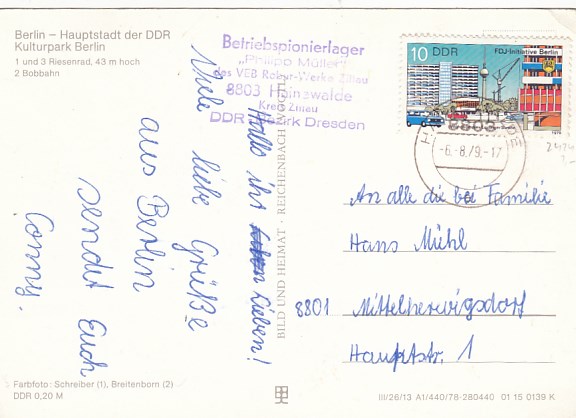 Berlin – Hauptstadt der DDR
Kulturpark Berlin
1 und 3 Riesenrad, 43 m hoch
2 Bobbahn
Betriebspionierlager
„Philipp Müller"
des VEB Robur-Werke Zittau
8803 Hainewalde
Kreis Zittau
DDR Bezirk Dresden
10 DDR FDJ-Initiative Berlin
1979
8803
-6.-8.79.-17
Hallo ihr Lieben!
Viele liebe Grüße
aus Berlin
sendet Euch
Conny.
BILD UND HEIMAT · REICHENBACH
An alle die bei Familie
Hans Mühl
8801 Mittelherwigsdorf
Hauptstr. 1
Farbfoto: Schreiber (1), Breitenborn (2)
DDR 0,20 M
III/26/13 A1/440/78-280440 01 15 0139 K